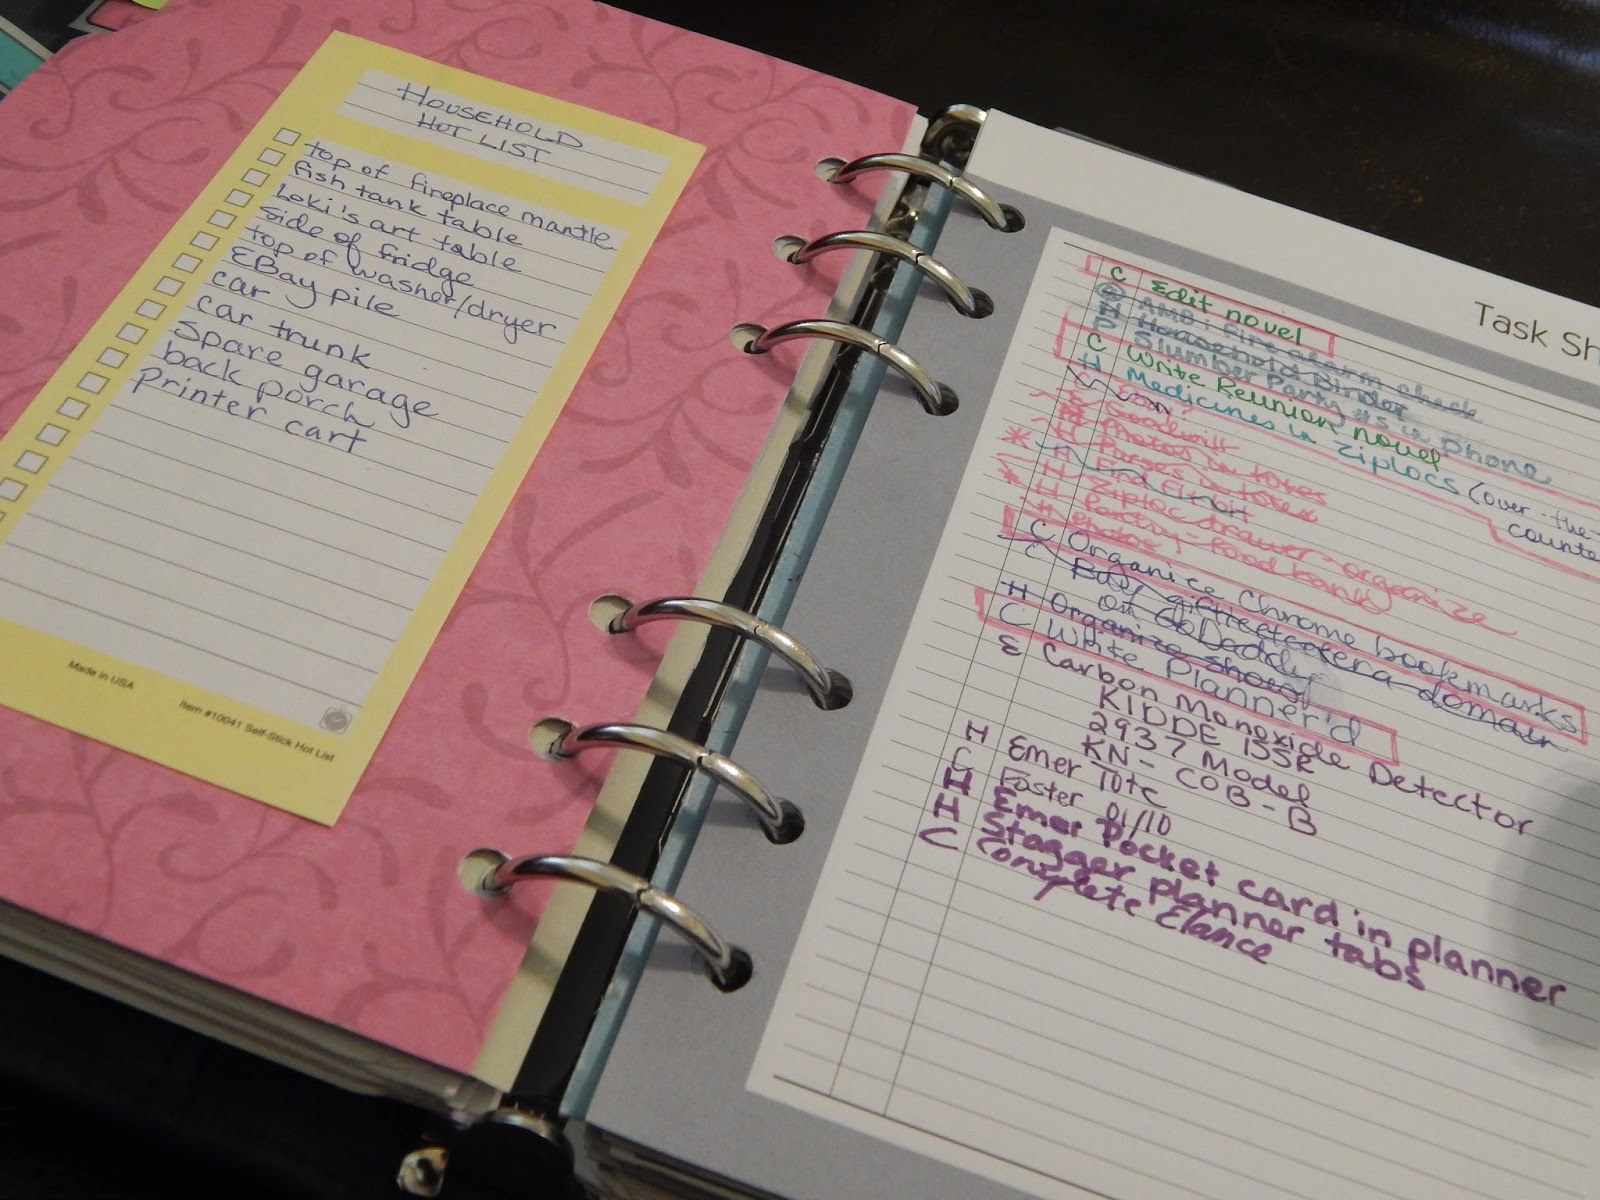 HOUSEHOLD
HOT LIST
top of fireplace mantle
fish tank table
Loki's art table
side of fridge
top of washer/dryer
EBay pile
car
car trunk
Spare garage
back porch
printer cart
Made in USA
Item #10041 Self-Stick Hot List
Task Sh
C Edit novel
AMB: Fire alarm check
H Household Binder
P Slumber Party #s in phone
C Write Reunion novel
H Medicines in Ziplocs (over-the-
counte
Goodwill
H Photos in totes
H Purses in totes
H Find Fitbit
H Ziploc drawer organize
H Pantry - Food bank
C Organize Chrome bookmarks
C Buy domain
on GoDaddy
H Organize shoes
C Write Planner'd
E Carbon Monoxide Detector
KIDDE ISSR
2937 Model
KN-COB-B
H Emer Tote
C Faster 01/10
H Emer Pocket card in planner
H Stagger planner tabs
C Complete Elance